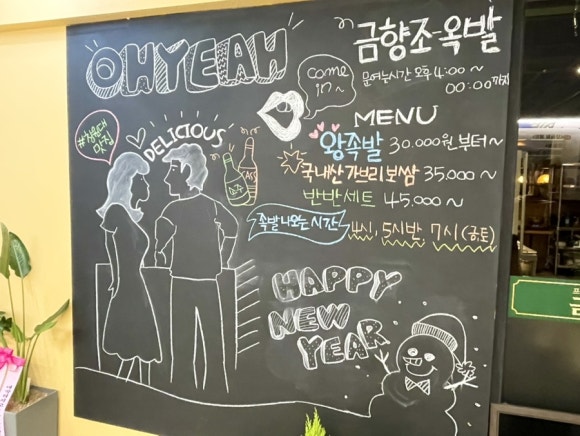 OH YEAH
금향조옥발
문여는시간 오후 4:00~
00:00까지
come
in~
MENU
#창원대
맛집
DELICIOUS
왕족발 30.000원부터~
국내산가브리보쌈 35.000~
반반세트 45.000~
소주
족발나오는시간 4시, 5시반, 7시(금.토)
HAPPY
NEW
YEAR